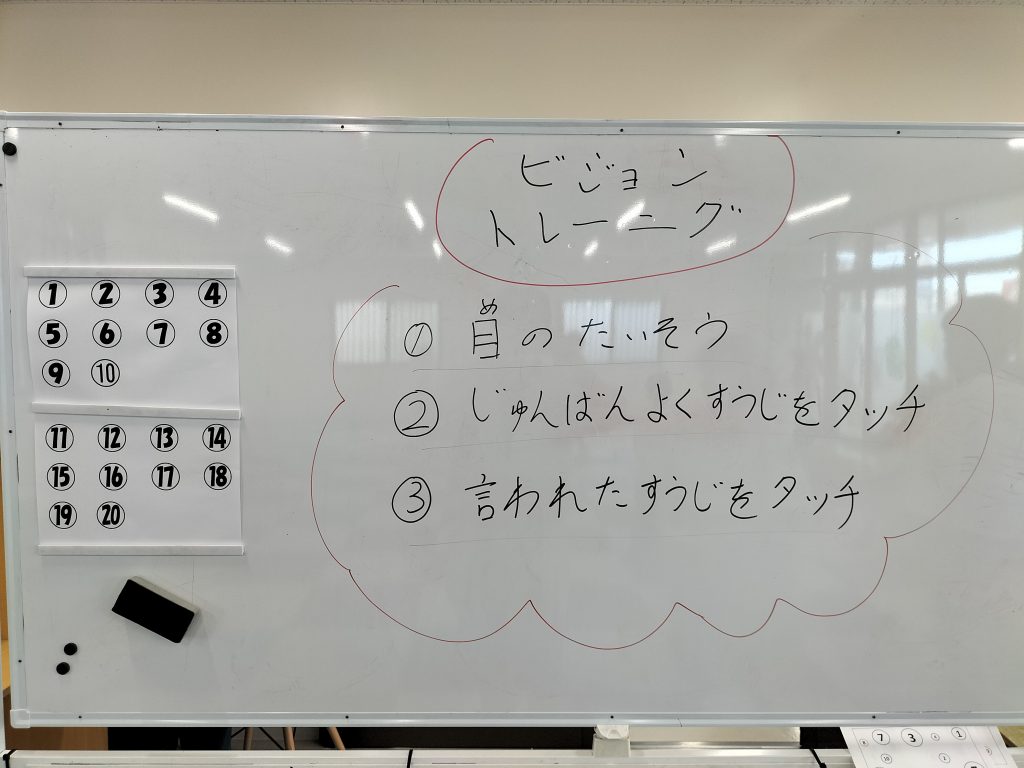 ビジョン
トレーニング
① 目のたいそう
め
② じゅんばんよくすうじをタッチ
③ 言われたすうじをタッチ
① ② ③ ④
⑤ ⑥ ⑦ ⑧
⑨ ⑩
⑪ ⑫ ⑬ ⑭
⑮ ⑯ ⑰ ⑱
⑲ ⑳
⑦ ③ ①